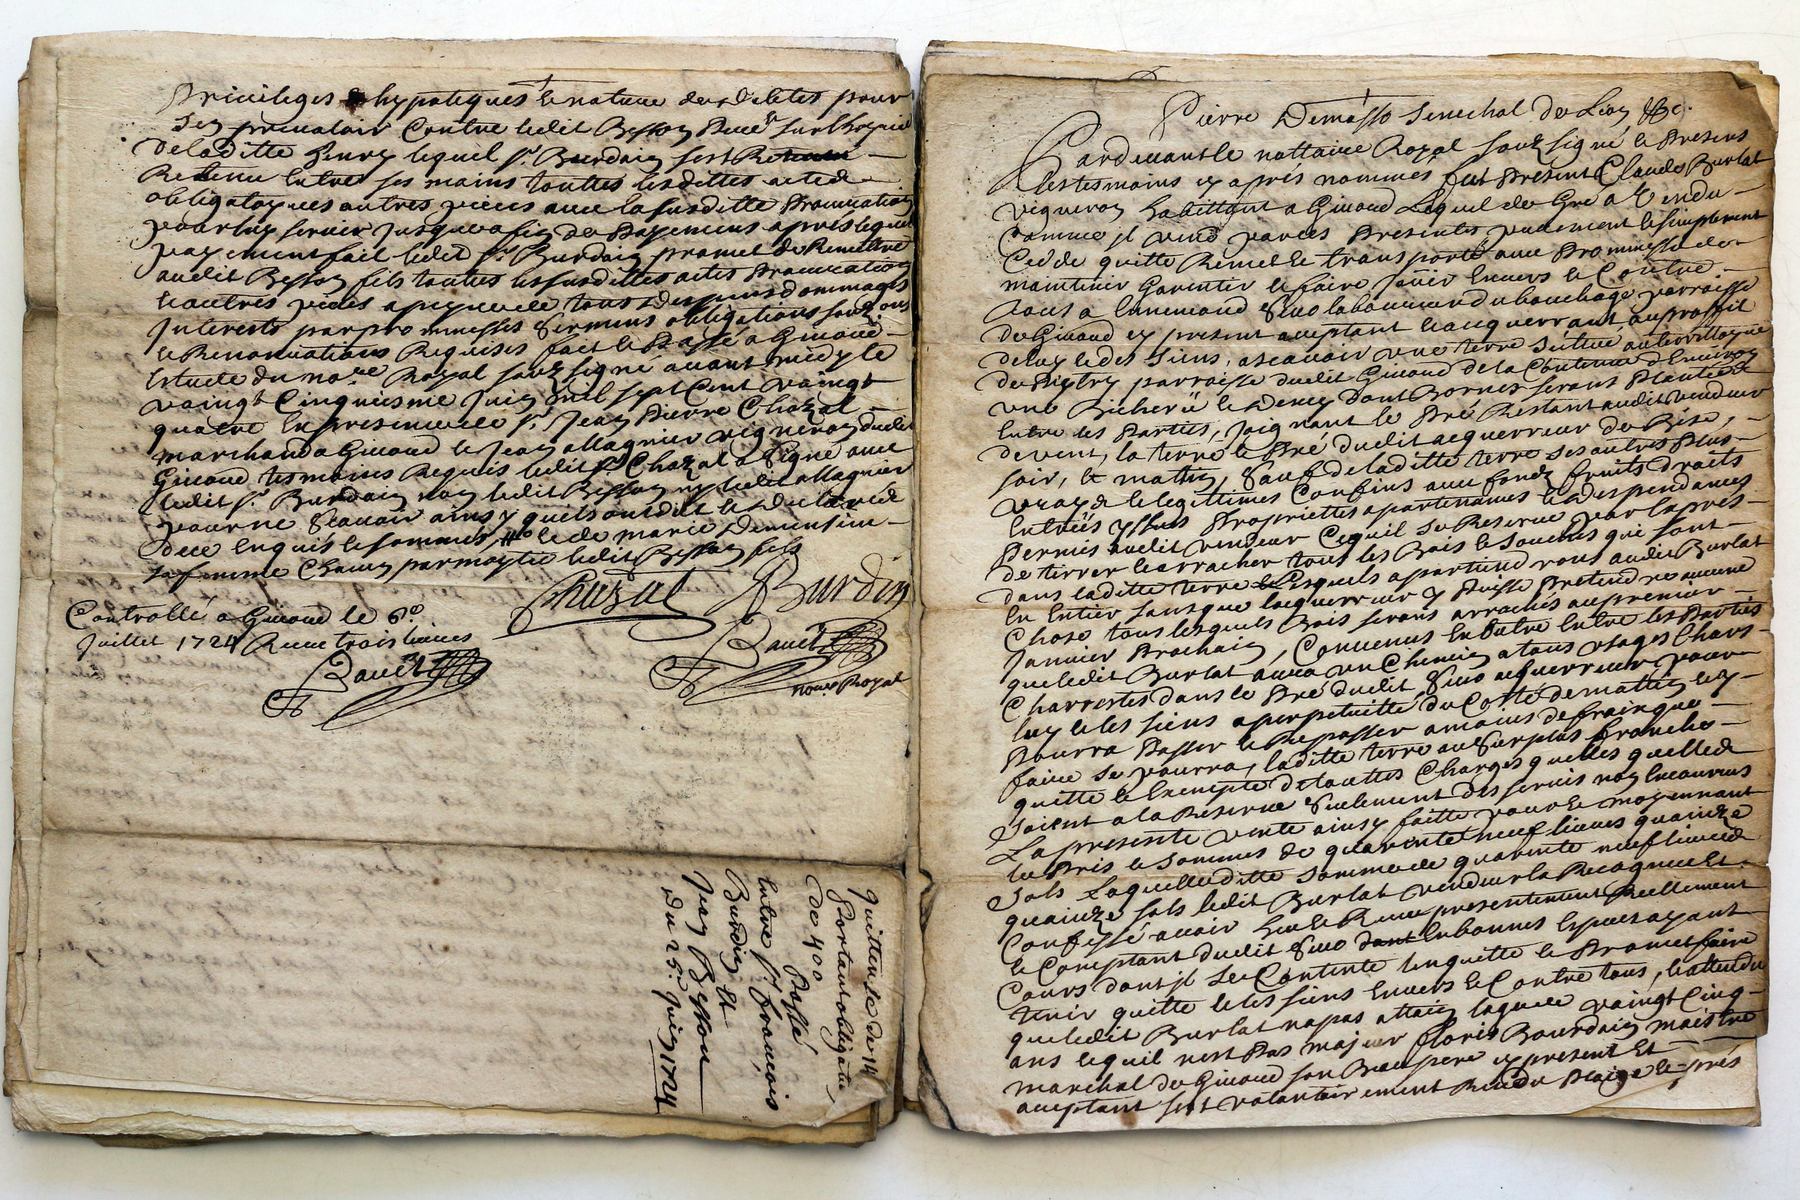 Privileges & hypoteques & nature des debtes pour
Contre ledit Besson
de laditte lequel sr. Burdain sest
Retenu Entre ses mains touttes lesdittes actes
obligatoyres autres pieces avec la susditte Procuration
pour luy servir jusques a fin de Payement apres lequel
payement fait ledit sr. Burdain promet de Remettre
audit Besson fils touttes les susdittes actes Procuration
& autres pieces a peyne de tous despens dommages
Interests par prommesses sermens obligations
& Renonciations Requises fait & Passé a Givord
Estude du nore. Royal soubsigné avant midy le
vaingt Cinquiesme Juin mil sept Cent vaingt
quatre En presence de sr. Jean Pierre Chazal
marchand a Givord & Jean Magnier vigneron dudit
Givord tesmoins Requis ledit sr Chazal a signé avec
ledit sr. Burdain non ledit Besson ny ledit Magnier
pour ne scavoir ainsy quils ont dit & declaré
de ce Enquis & sommés, & de marie
sa femme Chacun par moytie ledit Besson fils
Chazal Burdin
Controllé a Givord le 6e.
Juillet 1724 Receu trois livres
nore Royal
quittense de 14
Portant obligation
de 400 Passé
Entre sr. francois
Burdin Et
Jean Besson
du 25e. Juin 1724
Pierre Demasso Senechal de Lion &c.
Pardevant le nottaire Royal soubsigné & Presens
les tesmoins cy apres nommés fut Present Claude Burlat
vigneron habittant a Givord Lequel de Gré a Vendu
Comme il vend par ces Presentes purement & simplement
Cedde quitte Remet & transporte avec Prommesse de
maintenir Garentir & faire Jouir Envers & Contre
tous a Ennemond laboureur du bouchage parroisse
de Givord cy present acceptant & acquerrant, au proffit
de luy & des siens, ascavoir une terre scittue au territtoyre
de parroisse dudit Givord de la Contenue d'Environ
une Bicherée & Demy dont Bornes serons Plantées
Entre les Parties, Joignant le Pré Restant audit vendeur
de vent, la terre & Pré dudit acquerreur de Bise,
soir, & matin, sauf de laditte terre ses autres Plus
vrays & legittimes Confins avec fonds fruits droits
Entrées yssues Proprietes apartenances & despendances
Permis audit vendeur Ce quil se Reserve par la pres
de terrer & arracher tous les Bois & souches qui sont
dans laditte terre Lesquels apartiendrons audit Burlat
En Entier sans que lacquerreur y Puisse Pretendre aucune
Chose tous lesquels Bois serons arrachés au premier
Janvier Prochain, Convenus En Outre Entre les Parties
que ledit Burlat aura un Chemin a tous usages Chars
Charrettes dans le Pré dudit acquerreur pour
luy & les siens a perpetuitte du Costé de mattin & y
Pourra Passer & Repasser a moins de frain que
faire se pourra, laditte terre au surplus franche
quitte & Exempte de touttes Charges quelles quelles
soient a la Reserve seulement des servis non Encourrus
La presente vente ainsy faitte pour & moyennant
le Pris & sommes de quarente neuf livres quainze
sols Laquelle ditte somme de quarente neuf livres
quainze sols ledit Burlat vendeur la Recogneu Et
Confessé avoir heu & Receu presentement Reellement
& Comptant dudit En bonnes Especes ayant
Cours dont il se Contente Enquitte & Promet faire
tenir quitte & les siens Envers & Contre tous, & attendu
que ledit Burlat na pas attain laguee vaingt Cinq
ans & quil nest Pas majeur floris Bourdain maistre
marchal de Givord son Beaupere cy present Et
acceptant sest volontairement Rendu Plaige & pres